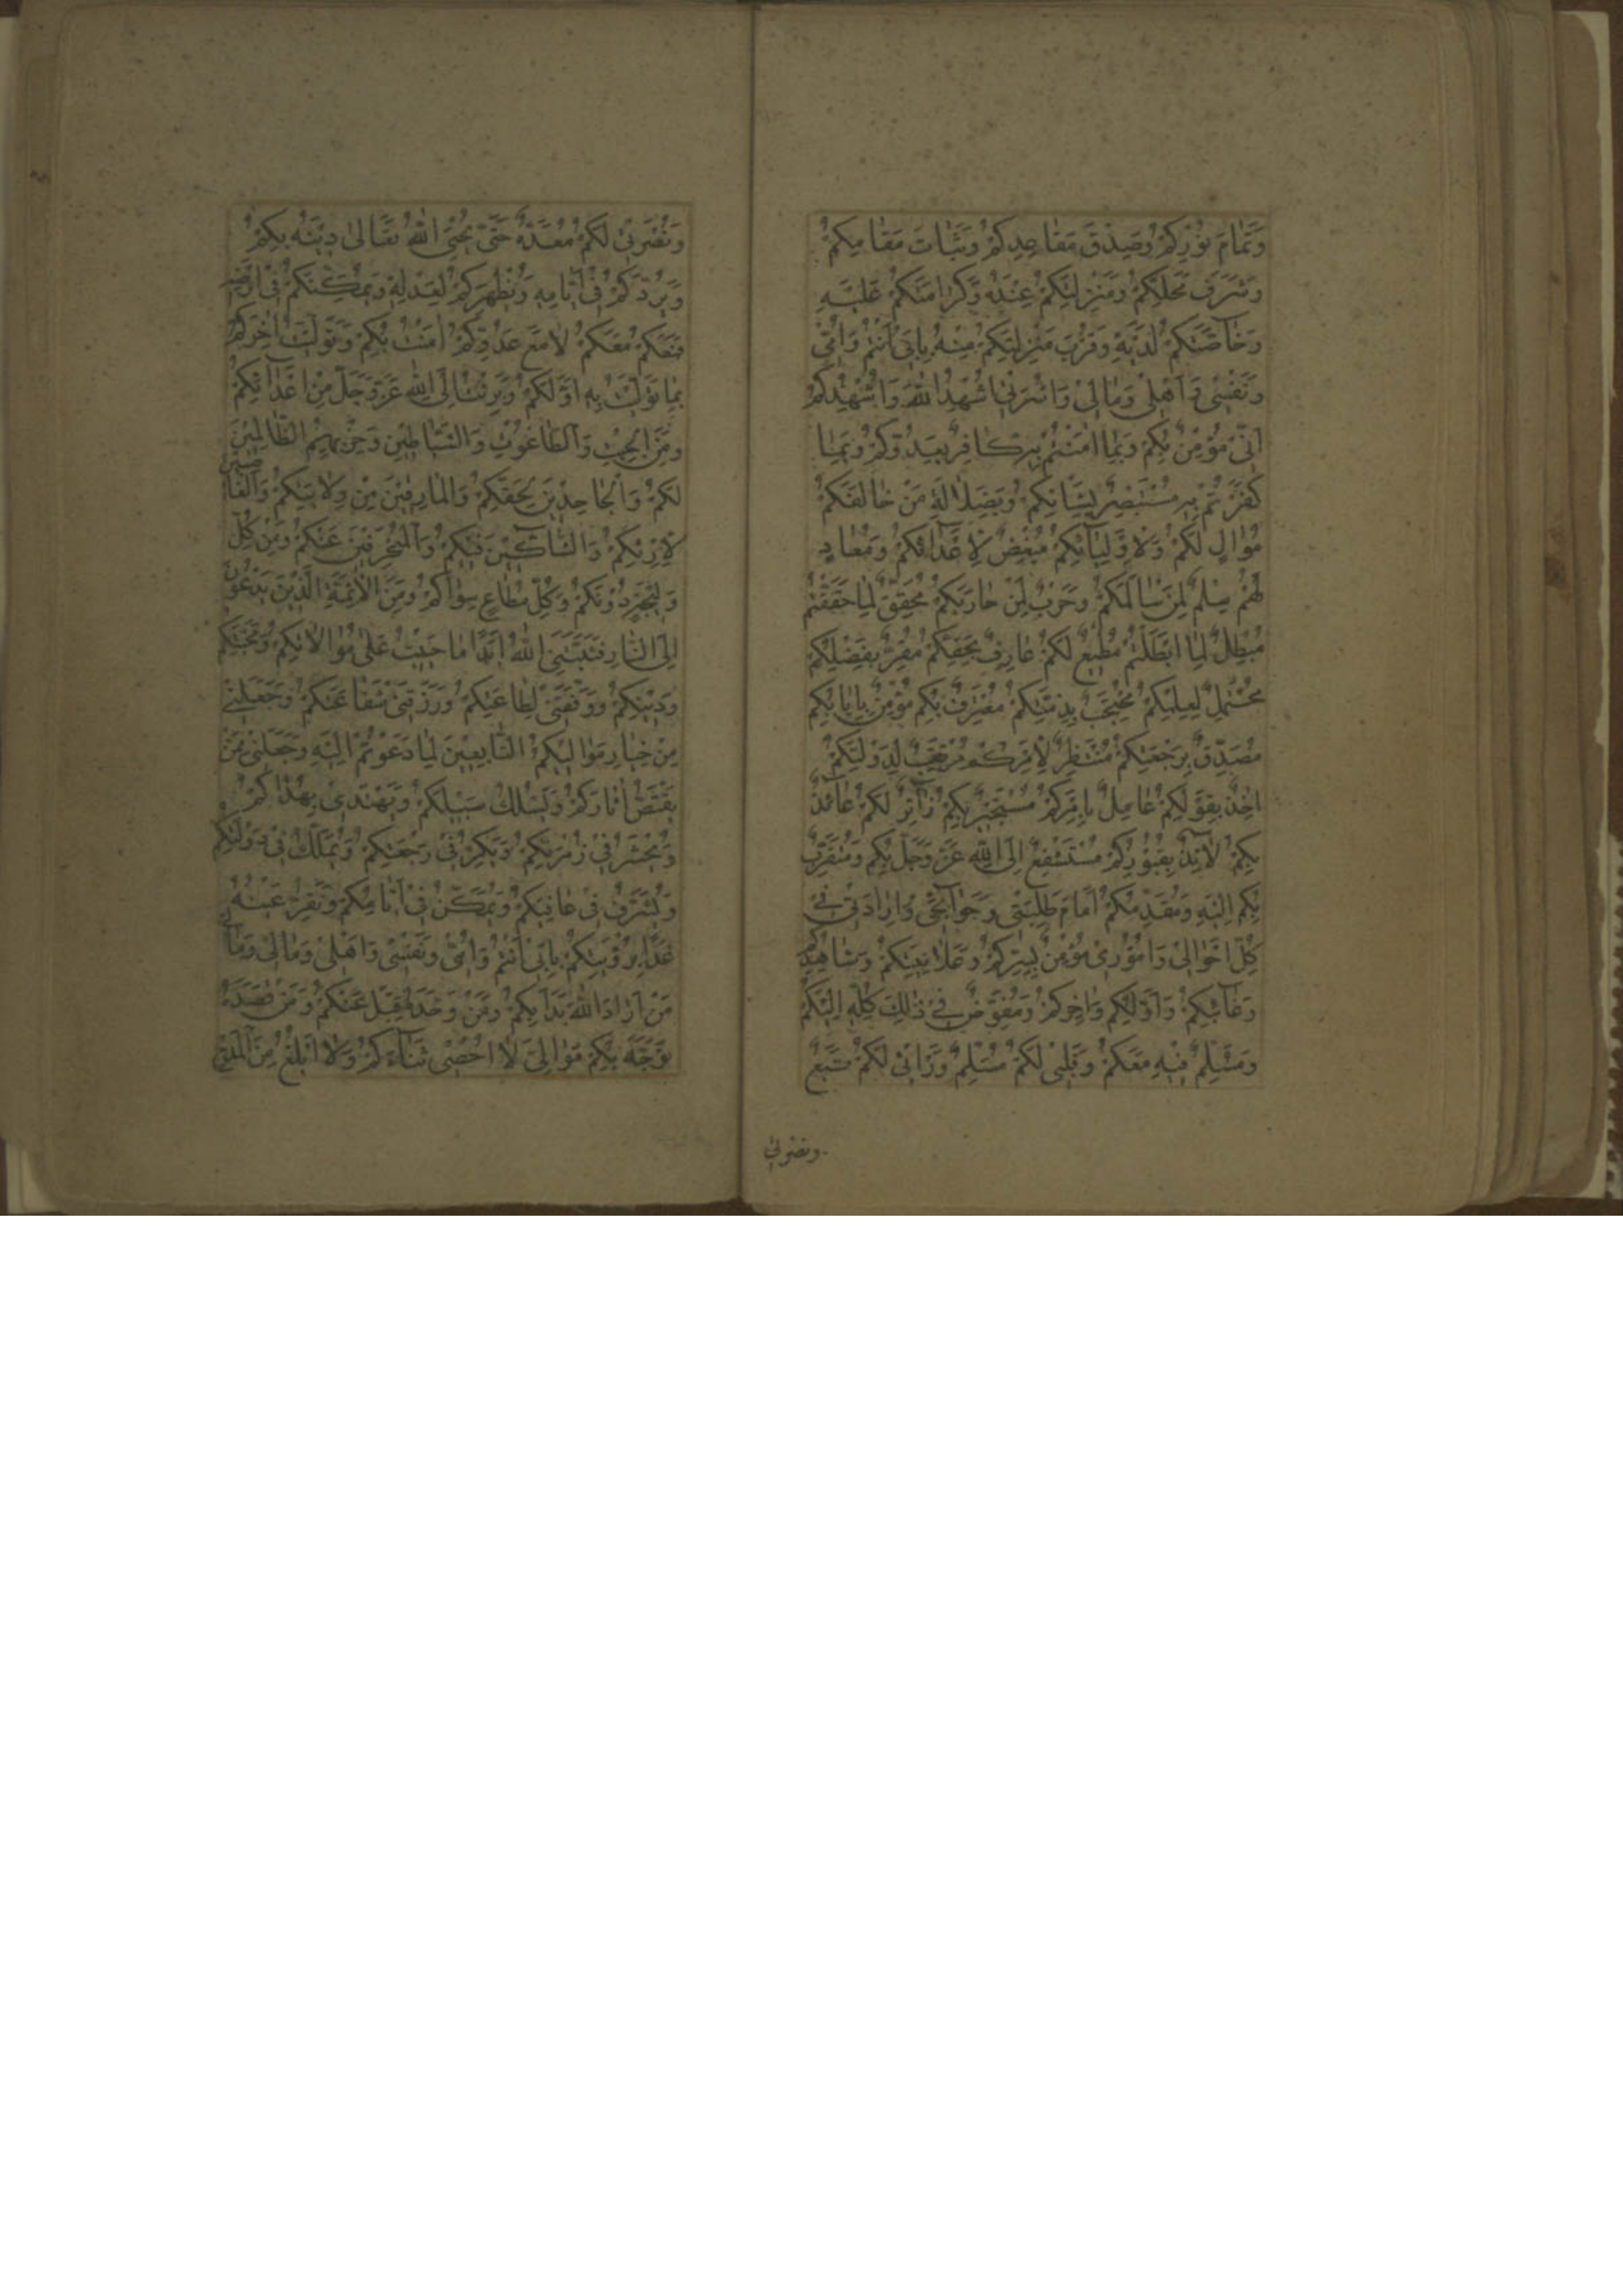 وَتَمَامَ نُوْرِكُمْ وَصِدْقَ مَقَاعِدِكُمْ وَثَبَاتَ مَقَامِكُمْ
وَشَرَفَ مَحَلِّكُمْ وَمَنْزِلَتِكُمْ عِنْدَهُ وَكَرَامَتَكُمْ عَلَيْهِ
وَخَاصَّتَكُمْ لَدَيْهِ وَقُرْبَ مَنْزِلَتِكُمْ مِنْهُ بِاَبِيْ اَنْتُمْ وَاُمِّيْ
وَنَفْسِيْ وَاَهْلِيْ وَمَالِيْ وَاُسْرَتِيْ اُشْهِدُ اللهَ وَاُشْهِدُكُمْ
اَنِّيْ مُؤْمِنٌ بِكُمْ وَبِمَا اٰمَنْتُمْ بِهِ كَافِرٌ بِعَدُوِّكُمْ وَبِمَا
كَفَرْتُمْ بِهِ مُسْتَبْصِرٌ بِشَانِكُمْ وَبِضَلَالَةِ مَنْ خَالَفَكُمْ
مُوَالٍ لَكُمْ وَلِاَوْلِيَآئِكُمْ مُبْغِضٌ لِاَعْدَآئِكُمْ وَمُعَادٍ
لَهُمْ سِلْمٌ لِمَنْ سَالَمَكُمْ وَحَرْبٌ لِمَنْ حَارَبَكُمْ مُحَقِّقٌ لِمَا حَقَّقْتُمْ
مُبْطِلٌ لِمَا اَبْطَلْتُمْ مُطِيْعٌ لَكُمْ عَارِفٌ بِحَقِّكُمْ مُقِرٌّ بِفَضْلِكُمْ
مُحْتَمِلٌ لِعِلْمِكُمْ مُحْتَجِبٌ بِذِمَّتِكُمْ مُعْتَرِفٌ بِكُمْ مُؤْمِنٌ بِاِيَابِكُمْ
مُصَدِّقٌ بِرَجْعَتِكُمْ مُنْتَظِرٌ لِاَمْرِكُمْ مُرْتَقِبٌ لِدَوْلَتِكُمْ
اٰخِذٌ بِقَوْلِكُمْ عَامِلٌ بِاَمْرِكُمْ مُسْتَجِيْرٌ بِكُمْ زَآئِرٌ لَكُمْ عَآئِذٌ
بِكُمْ لَآئِذٌ بِقُبُوْرِكُمْ مُسْتَشْفِعٌ اِلَى اللهِ عَزَّ وَجَلَّ بِكُمْ وَمُتَقَرِّبٌ
بِكُمْ اِلَيْهِ وَمُقَدِّمُكُمْ اَمَامَ طَلِبَتِيْ وَحَوَآئِجِيْ وَاِرَادَتِيْ فِيْ
كُلِّ اَحْوَالِيْ وَاُمُوْرِيْ مُؤْمِنٌ بِسِرِّكُمْ وَعَلَانِيَتِكُمْ وَشَاهِدِكُمْ
وَغَآئِبِكُمْ وَاَوَّلِكُمْ وَاٰخِرِكُمْ وَمُفَوِّضٌ فِيْ ذٰلِكَ كُلِّهِ اِلَيْكُمْ
وَمُسَلِّمٌ فِيْهِ مَعَكُمْ وَقَلْبِيْ لَكُمْ مُسَلِّمٌ وَرَأْيِيْ لَكُمْ تَبَعٌ
ونصرتى
وَنُصْرَتِيْ لَكُمْ مُعَدَّةٌ حَتّٰى يُحْيِيَ اللهُ تَعَالٰى دِيْنَهُ بِكُمْ
وَيَرُدَّكُمْ فِيْ اَيَّامِهِ وَيُظْهِرَكُمْ لِعَدْلِهِ وَيُمَكِّنَكُمْ فِيْ اَرْضِهِ
فَمَعَكُمْ مَعَكُمْ لَا مَعَ عَدُوِّكُمْ اٰمَنْتُ بِكُمْ وَتَوَلَّيْتُ اٰخِرَكُمْ
بِمَا تَوَلَّيْتُ بِهِ اَوَّلَكُمْ وَبَرِئْتُ اِلَى اللهِ عَزَّ وَجَلَّ مِنْ اَعْدَآئِكُمْ
وَمِنَ الْجِبْتِ وَالطَّاغُوْتِ وَالشَّيَاطِيْنِ وَحِزْبِهِمُ الظَّالِمِيْنَ
لَكُمْ وَالْجَاحِدِيْنَ لِحَقِّكُمْ وَالْمَارِقِيْنَ مِنْ وِلَايَتِكُمْ وَالْغَاصِبِيْنَ
لِاِرْثِكُمْ وَالشَّآكِّيْنَ فِيْكُمْ وَالْمُنْحَرِفِيْنَ عَنْكُمْ وَمِنْ كُلِّ
وَلِيْجَةٍ دُوْنَكُمْ وَكُلِّ مُطَاعٍ سِوَاكُمْ وَمِنَ الْاَئِمَّةِ الَّذِيْنَ يَدْعُوْنَ
اِلَى النَّارِ فَثَبَّتَنِيَ اللهُ اَبَدًا مَا حَيِيْتُ عَلٰى مُوَالَاتِكُمْ وَمَحَبَّتِكُمْ
وَدِيْنِكُمْ وَوَفَّقَنِيْ لِطَاعَتِكُمْ وَرَزَقَنِيْ شَفَاعَتَكُمْ وَجَعَلَنِيْ
مِنْ خِيَارِ مَوَالِيْكُمُ التَّابِعِيْنَ لِمَا دَعَوْتُمْ اِلَيْهِ وَجَعَلَنِيْ مِمَّنْ
يَقْتَصُّ اٰثَارَكُمْ وَيَسْلُكُ سَبِيْلَكُمْ وَيَهْتَدِيْ بِهُدَاكُمْ
وَيُحْشَرُ فِيْ زُمْرَتِكُمْ وَيَكِرُّ فِيْ رَجْعَتِكُمْ وَيُمَلَّكُ فِيْ دَوْلَتِكُمْ
وَيُشَرَّفُ فِيْ عَافِيَتِكُمْ وَيُمَكَّنُ فِيْ اَيَّامِكُمْ وَتَقِرُّ عَيْنُهُ
غَدًا بِرُؤْيَتِكُمْ بِاَبِيْ اَنْتُمْ وَاُمِّيْ وَنَفْسِيْ وَاَهْلِيْ وَمَالِيْ
مَنْ اَرَادَ اللهَ بَدَأَ بِكُمْ وَمَنْ وَحَّدَهُ قَبِلَ عَنْكُمْ وَمَنْ قَصَدَهُ
تَوَجَّهَ بِكُمْ مَوَالِيَّ لَا اُحْصِيْ ثَنَآءَكُمْ وَلَا اَبْلُغُ مِنَ الْمَدْحِ